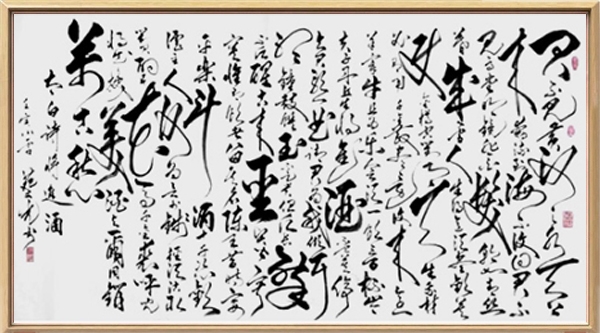 君不见黄河之水天上
来奔流到海不复回君不
见高堂明镜悲白发朝如青丝
暮成雪人生得意须尽欢莫
使金樽空对月天生我材
必有用千金散尽还复来烹
羊宰牛且为乐会须一饮三百杯岑
夫子丹丘生将进酒杯莫停
与君歌一曲请君为我倾耳
听钟鼓馔玉不足贵但愿长醉不
愿醒古来圣贤皆寂
寞惟有饮者留其名陈王昔时宴
平乐斗酒十千恣欢
谑主人何为言少钱径须沽取
对君酌五花马千金裘呼儿
将出换美酒与尔同销
万古愁
太白诗将进酒
壬寅